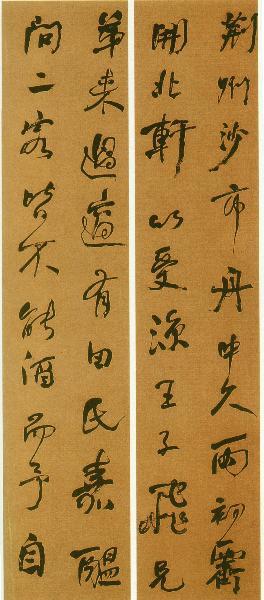 荊州沙市舟中久雨初霽
開北軒以受涼王子飛兄
弟来過適有田氏嘉醖
問二客皆不能酒而予自